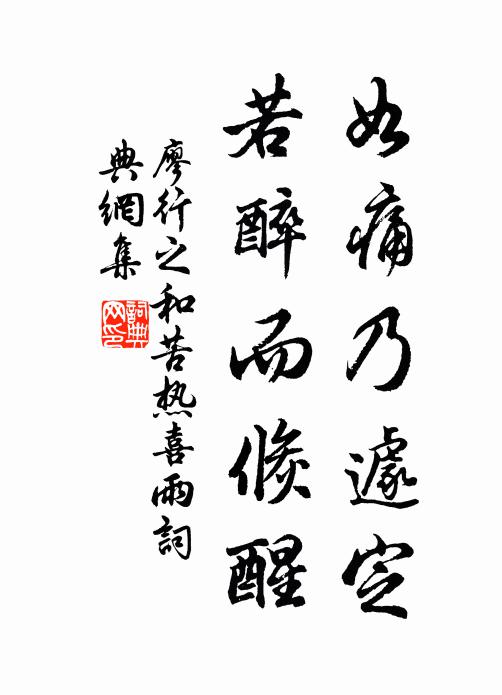 如痛乃遽定
若醉而倐醒
廖行之和苦热喜雨詞
典網集
詞典网印